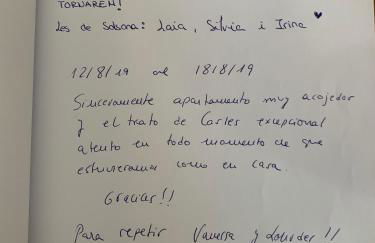 TORNAREM!
Les de Solsona: Laia, Sílvia i Irina
12/8/19 al 18/8/19
Sinceramente apartamento muy acojedor
y el trato de Carles excepcional
atento en todo momento de que
estuvieramos como en casa.
Gracias!!
Para repetir Vanessa y Lourdes!!